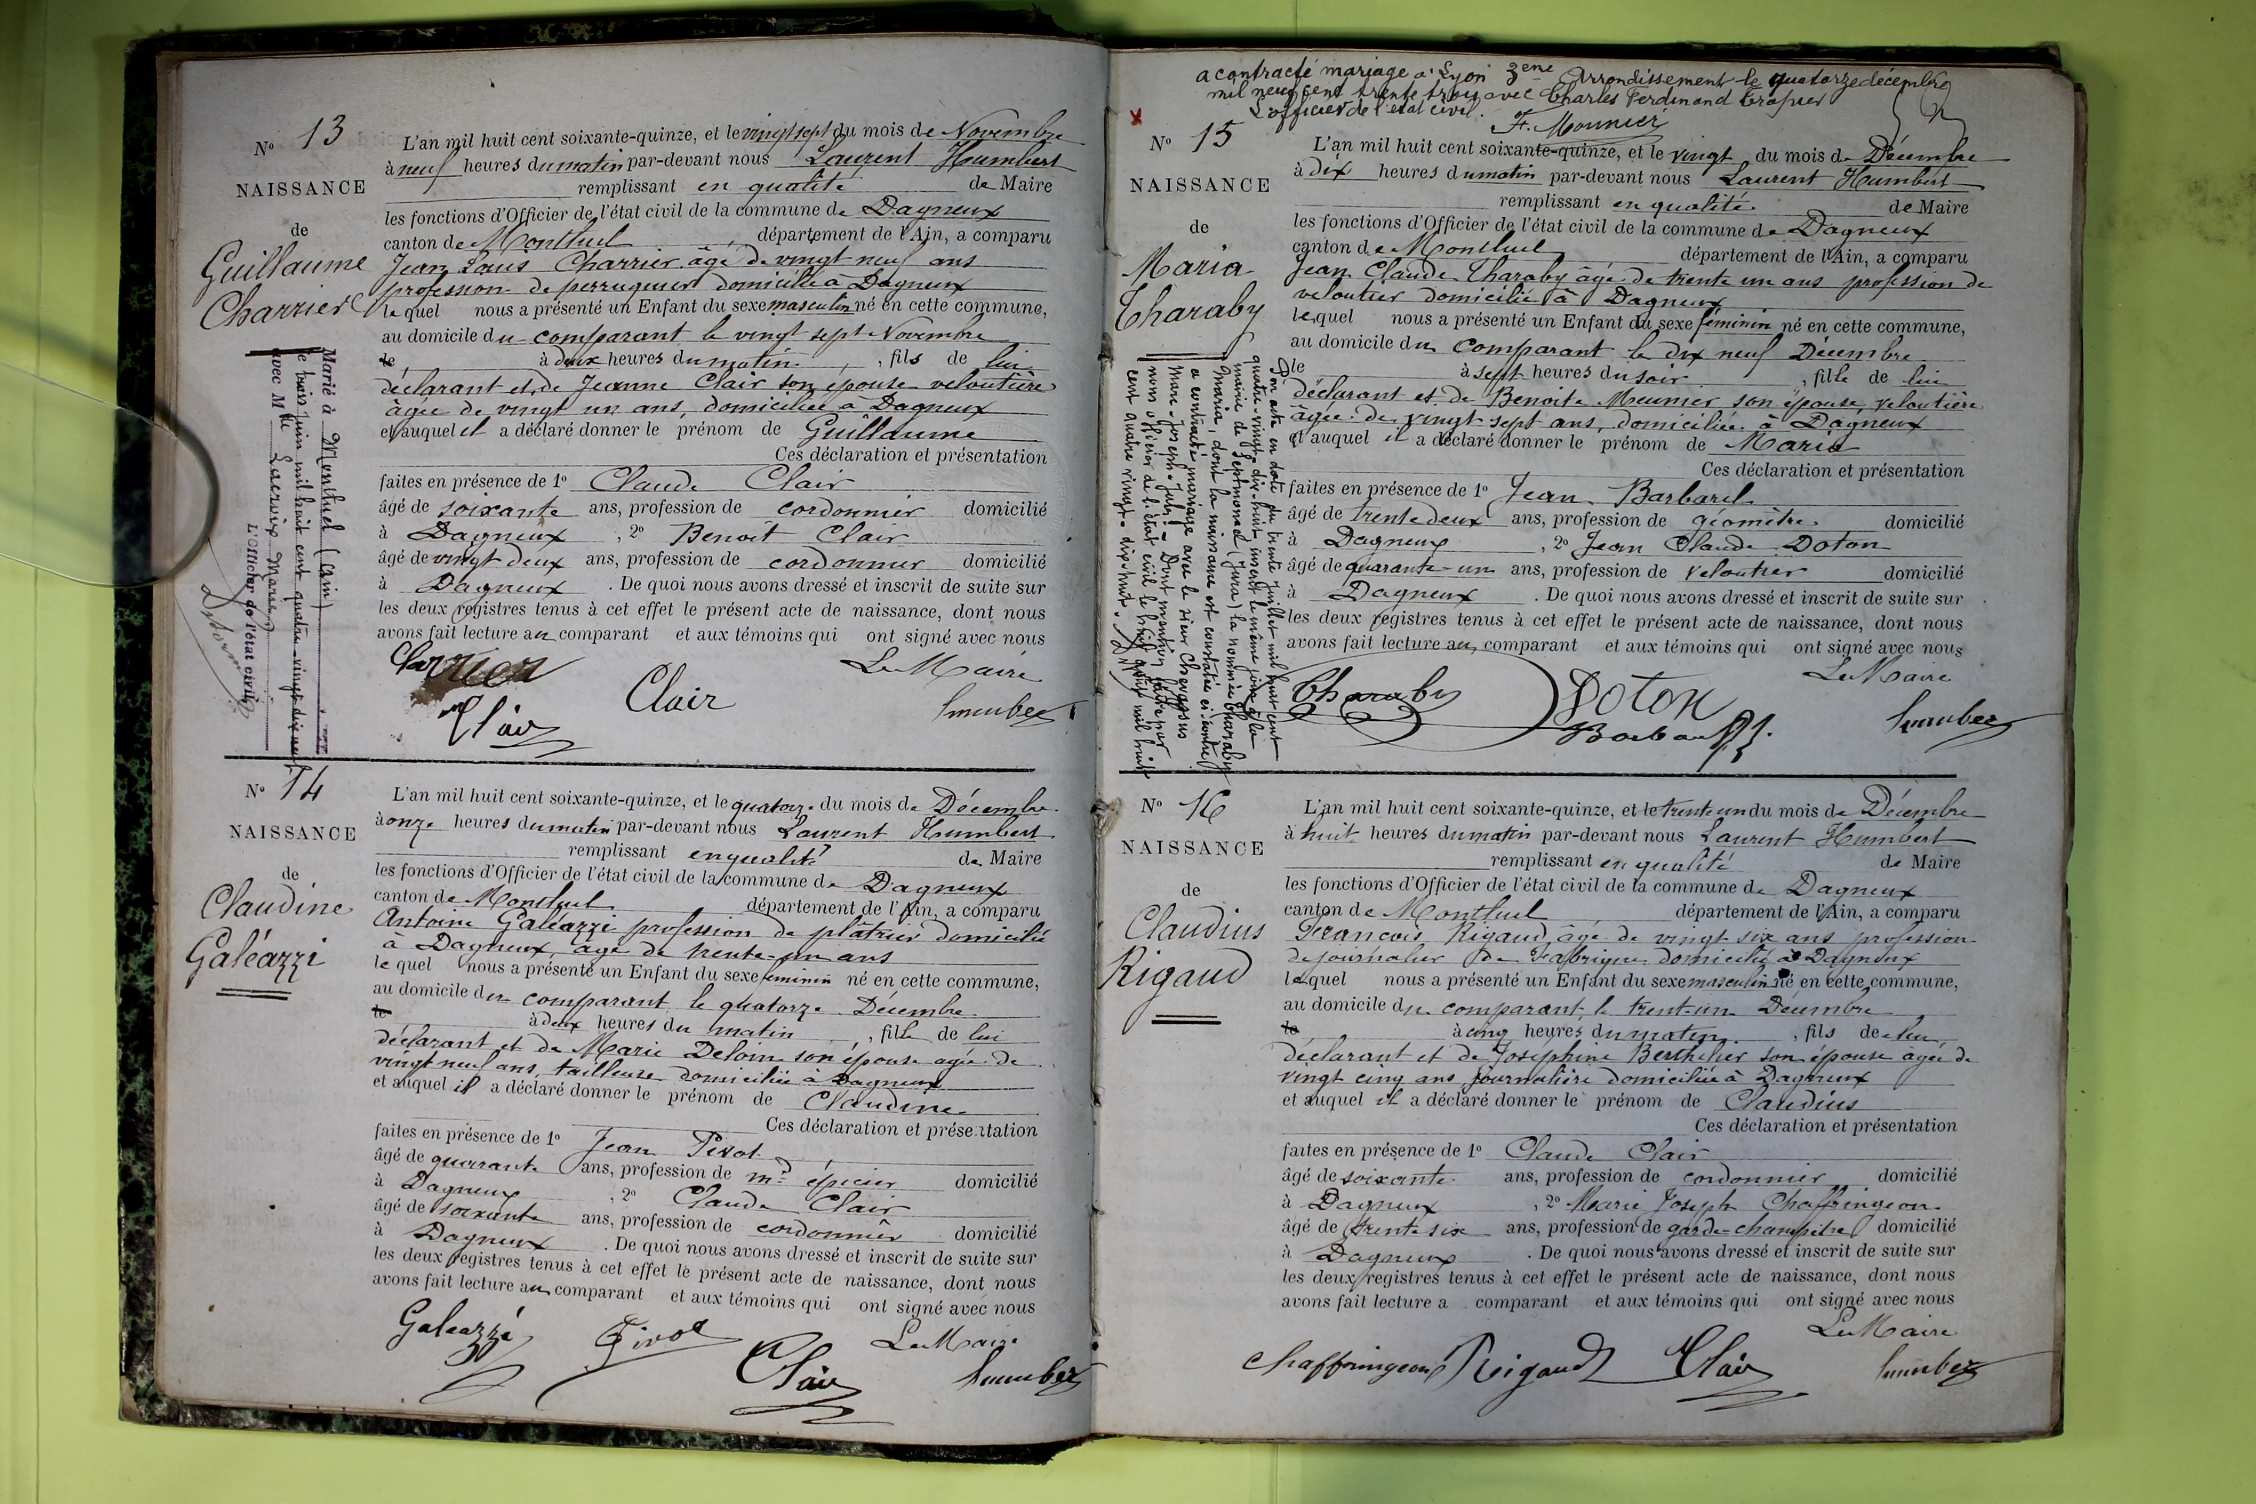 N° 13
NAISSANCE
de
Guillaume
Charrier
Marié à Montluel (Ain)
le trois juin mil huit cent quatre-vingt-dix neuf
avec Mlle Lacroix
L'Officier de l'état civil,
L'an mil huit cent soixante-quinze, et le vingt sept du mois de Novembre
à neuf heures du matin par-devant nous Laurent Humbert
remplissant en qualité de Maire
les fonctions d'Officier de l'état civil de la commune de Dagneux
canton de Montluel, département de l'Ain, a comparu
Jean Louis Charrier âgé de vingt neuf ans
profession de perruquier domicilié à Dagneux
lequel nous a présenté un Enfant du sexe masculin né en cette commune,
au domicile du comparant le vingt sept Novembre
le à deux heures du matin, fils de lui
déclarant et de Jeanne Clair son épouse veloutière
âgée de vingt un ans, domiciliée à Dagneux
et auquel il a déclaré donner le prénom de Guillaume
Ces déclaration et présentation
faites en présence de 1° Claude Clair
âgé de soixante ans, profession de cordonnier domicilié
à Dagneux, 2° Benoit Clair
âgé de vingt deux ans, profession de cordonnier domicilié
à Dagneux. De quoi nous avons dressé et inscrit de suite sur
les deux registres tenus à cet effet le présent acte de naissance, dont nous
avons fait lecture au comparant et aux témoins qui ont signé avec nous
Charrier
Le Maire
Clair
Clair
Humbert
N° 14
NAISSANCE
de
Claudine
Galéazzi
L'an mil huit cent soixante-quinze, et le quatorze du mois de Décembre
à onze heures du matin par-devant nous Laurent Humbert
remplissant en qualité de Maire
les fonctions d'Officier de l'état civil de la commune de Dagneux
canton de Montluel département de l'Ain, a comparu
Antoine Galéazzi profession de plâtrier domicilié
à Dagneux, âgé de trente-un ans
lequel nous a présenté un Enfant du sexe féminin né en cette commune,
au domicile du comparant le quatorze Décembre
le à deux heures du matin, fille de lui
déclarant et de Marie Deloin son épouse agée de
vingt neuf ans, tailleuse domiciliée à Dagneux
et auquel il a déclaré donner le prénom de Claudine
Ces déclaration et présentation
faites en présence de 1° Jean Pivot
âgé de quarante ans, profession de md épicier domicilié
à Dagneux, 2° Claude Clair
âgé de soixante ans, profession de cordonnier domicilié
à Dagneux. De quoi nous avons dressé et inscrit de suite sur
les deux registres tenus à cet effet le présent acte de naissance, dont nous
avons fait lecture au comparant et aux témoins qui ont signé avec nous
Galeazzi Pivot Le Maire
Clair Humbert
a contracté mariage à Lyon 3eme Arrondissement le quatorze décembre
mil neuf cent trente trois avec Charles Ferdinand
L'officier de l'état civil.
F. Mounier
N° 15
NAISSANCE
de
Maria
Tharaby
Par acte en date du trente Juillet mil huit cent
quatre-vingt-dix-huit inscrit le même jour à la
mairie de Septmoncel (Jura) la nommée Tharaby
Maria, dont la naissance est constatée ci-contre
a contracté mariage avec le sieur
Marc-Joseph-Jules. Dont mention faite par
nous officier de l'état civil le huit août mil huit
cent quatre vingt-dix-huit.
L'an mil huit cent soixante-quinze, et le vingt du mois de Décembre
à dix heures du matin par-devant nous Laurent Humbert
remplissant en qualité de Maire
les fonctions d'Officier de l'état civil de la commune de Dagneux
canton de Montluel département de l'Ain, a comparu
Jean Claude Tharaby âgé de trente un ans profession de
veloutier domicilié à Dagneux
lequel nous a présenté un Enfant du sexe féminin né en cette commune,
au domicile du comparant le dix neuf Décembre
le à sept heures du soir, fille de lui
déclarant et de Benoite Meunier son épouse, veloutière
âgée de vingt sept ans, domiciliée à Dagneux
et auquel il a déclaré donner le prénom de Maria
Ces déclaration et présentation
faites en présence de 1° Jean Barbaret
âgé de trente deux ans, profession de géomètre domicilié
à Dagneux, 2° Jean Claude Doton
âgé de quarante-un ans, profession de veloutier domicilié
à Dagneux. De quoi nous avons dressé et inscrit de suite sur
les deux registres tenus à cet effet le présent acte de naissance, dont nous
avons fait lecture au comparant et aux témoins qui ont signé avec nous
Le Maire
Tharaby Doton
Humbert
N° 16
NAISSANCE
de
Claudius
Rigaud
L'an mil huit cent soixante-quinze, et le trente un du mois de Décembre
à huit heures du matin par-devant nous Laurent Humbert
remplissant en qualité de Maire
les fonctions d'Officier de l'état civil de la commune de Dagneux
canton de Montluel, département de l'Ain, a comparu
François Rigaud âgé de vingt six ans profession
de journalier de Fabrique domicilié à Dagneux
lequel nous a présenté un Enfant du sexe masculin né en cette commune,
au domicile du comparant, le trent-un Décembre
le à cinq heures du matin, fils de lui
déclarant et de Joséphine Berthelier son épouse âgée de
vingt cinq ans journalière domiciliée à Dagneux
et auquel il a déclaré donner le prénom de Claudius
Ces déclaration et présentation
faites en présence de 1° Claude Clair
âgé de soixante ans, profession de cordonnier domicilié
à Dagneux, 2° Marie Joseph Chaffringeon
âgé de trente six ans, profession de garde-champêtre domicilié
à Dagneux. De quoi nous avons dressé et inscrit de suite sur
les deux registres tenus à cet effet le présent acte de naissance, dont nous
avons fait lecture a comparant et aux témoins qui ont signé avec nous
Le Maire
Chaffringeon Rigaud Clair Humbert